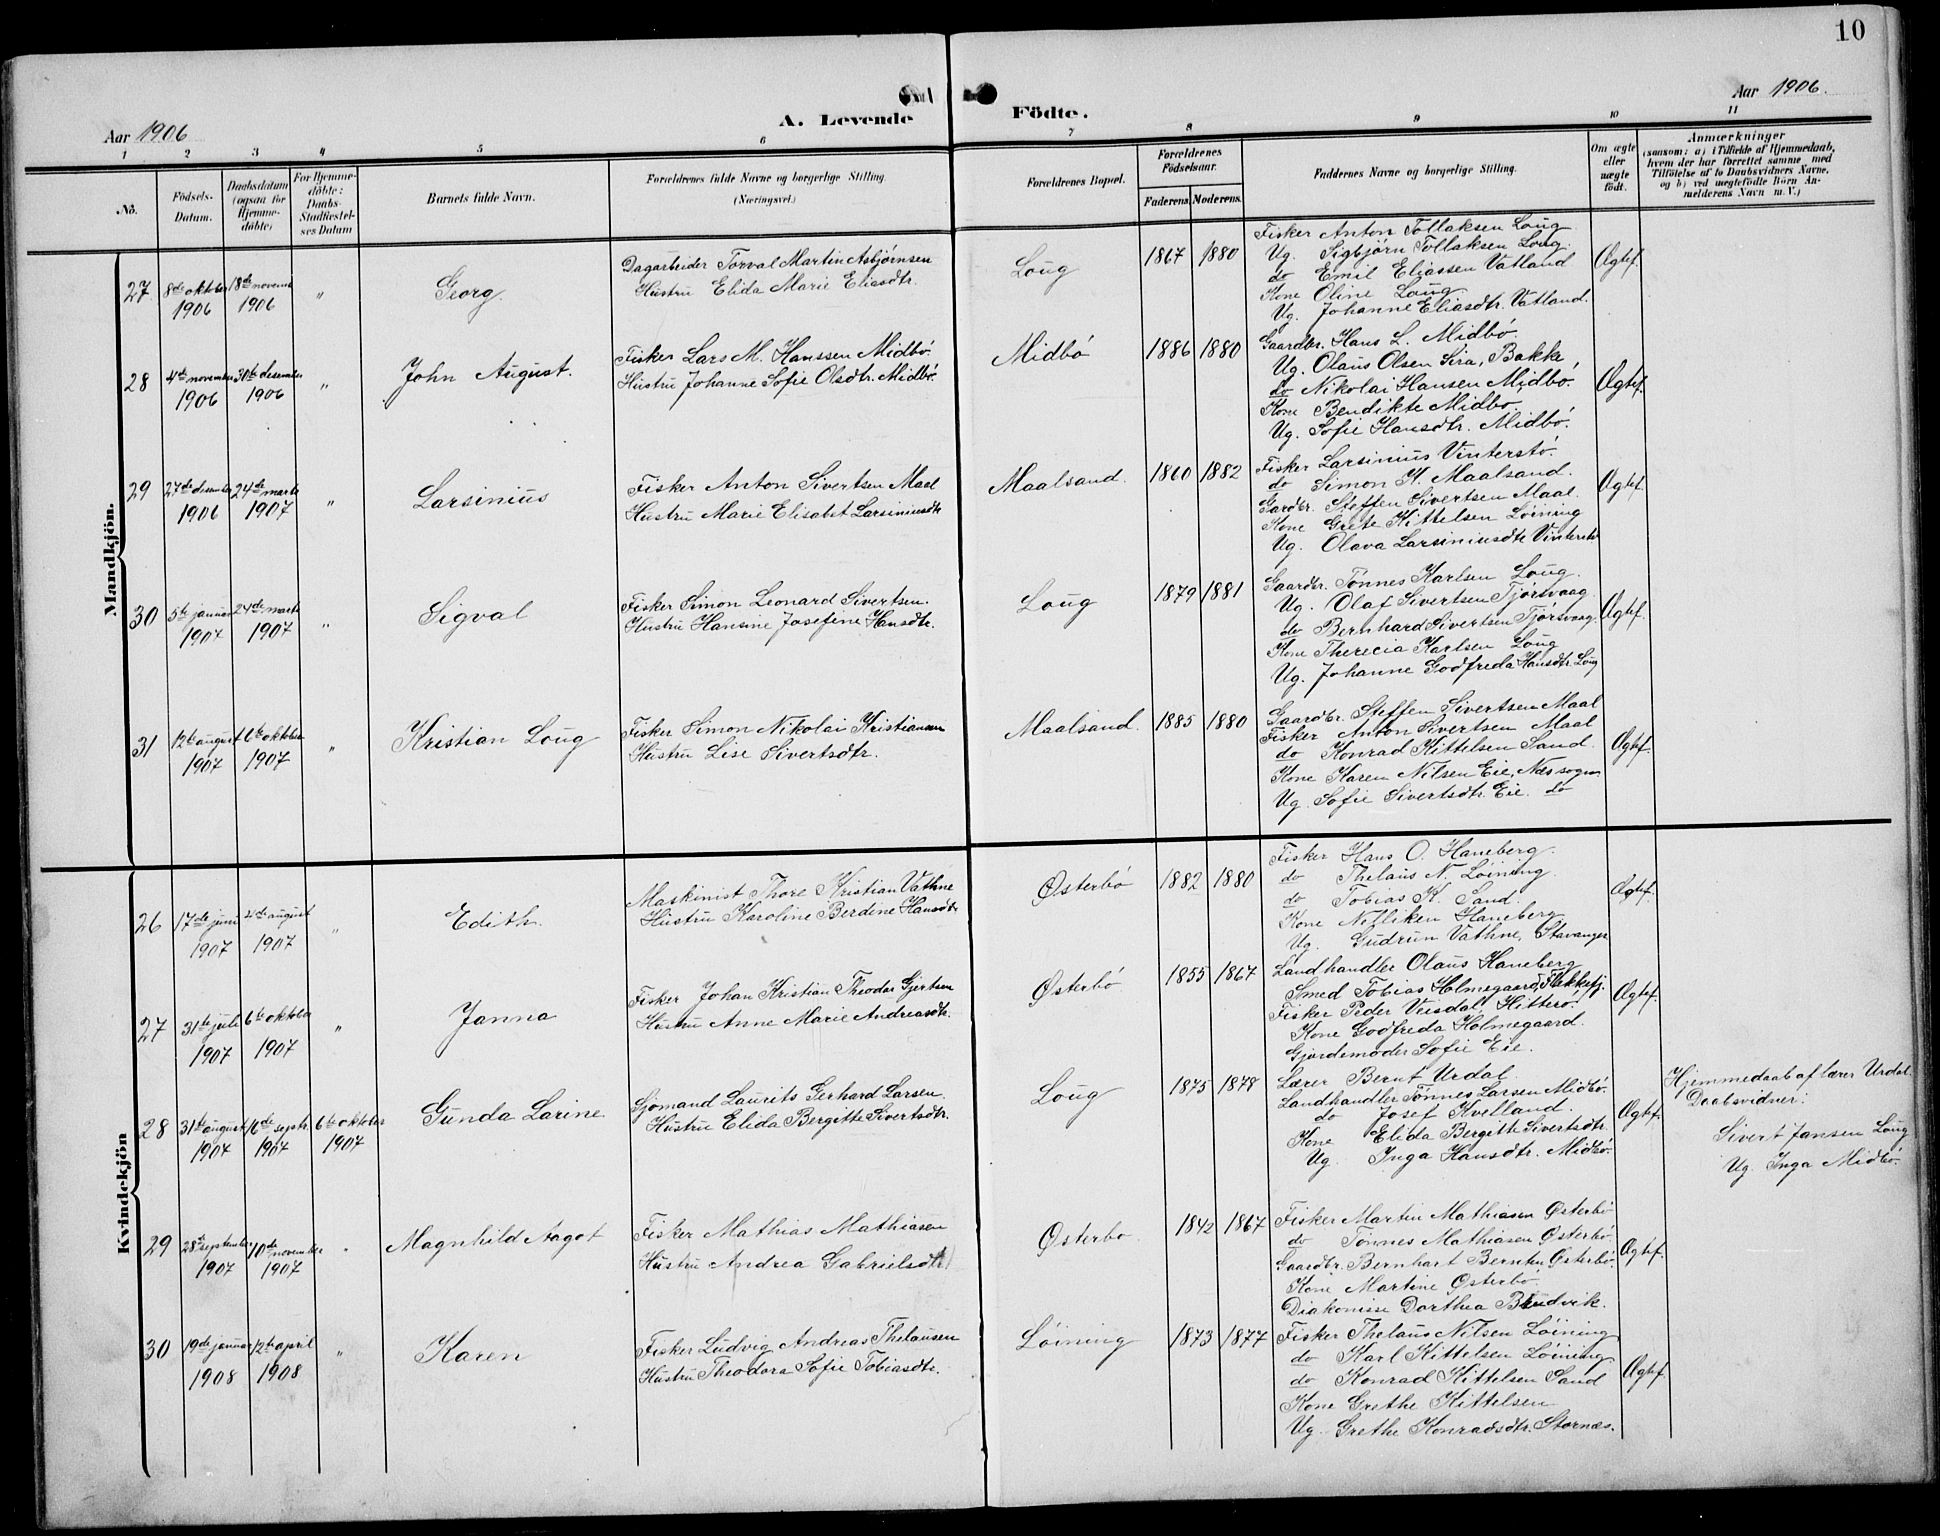 10
Aar 1906
A. Levende Födte.
Aar 1906.
1 2 3 4 5 6 7 8 9 10 11
No.
Födsels-
Datum.
Daabsdatum
(ogsaa for
Hjemme-
döbte)
For Hjemme-
döbte:
Daabs-
Stadfæstel-
ses Datum
Barnets fulde Navn.
Forældrenes fulde Navne og borgerlige Stilling.
(Næringsvei.)
Forældrenes Bopæl.
Forældrenes
Födselsaar.
Faderens. Moderens.
Faddernes Navne og borgerlige Stilling.
Om ægte
eller
uægte
født.
Anmærkninger
(saasom: a) i Tilfælde af Hjemmedaab,
hvem der har forrettet samme, med
Tilföielse af to Daabsvidners Navne,
og b) ved uægtefödte Börn An-
melderens Navn m. V.)
Mandkjön.
27
8de oktber
1906
18de novemb
1906
"
Georg.
Dagarbeider Torval Martin Asbjørnsen
Hustru Elida Marie Eliasdtr.
Loug
1867 1880
Fisker Anton Tollaksen Loug
Ug. Sigbjørn Tollaksen Loug.
do Emil Eliassen Vatland
Kone Oline Loug
Ug. Johanne Eliasdtr. Vatland.
Ægtef.
28
4de november
1906
30te desember
1906
"
John August.
Fisker Lars M. Hanssen Midbö.
Hustru Johanne Sofie Olsdtr. Midbö.
Midbö
1886 1880
Gaardbr. Hans L. Midbö
Ug. Olaus Olsen Sira, Bakke
do Nikolai Hansen Midbö.
Kone Bendikte Midbö.
Ug. Sofie Hansdtr. Midbö.
Ægtef.
29
27de desember
1906
24de marts
1907
"
Larsinius
Fisker Anton Sivertsen Maal
Hustru Marie Elisabet Larsiniusdtr
Maalsand.
1860 1882
Fisker Larsinius Vinterstö.
do Simon K. Maalsand.
Gardbr. Steffen Sivertsen Maal.
Kone Grete Kittelsen Löining
Ug. Olava Larsiniusdtr Vinterstö
Ægtef.
30
5te januar
1907
24de marts
1907
"
Sigval
Fisker Simon Leonard Sivertsen.
Hustru Hansine Josefine Hansdtr.
Loug
1879 1881
Gaardbr. Tönnes Karlsen Loug.
Ug. Olaf Sivertsen Tjörsvaag.
do Bernhard Sivertsen Tjörsvaag.
Kone Therecia Karlsen Loug
Ug. Johanne Godfreda Hansdtr. Loug
Ægtef.
31
12te august
1907
6te oktober
1907
"
Kristian Loug
Fisker Simon Nikolai Kristiansen
Hustru Lise Sivertsdtr.
Maalsand.
1885 1880
Gaardbr. Steffen Sivertsen Maal
Fisker Anton Sivertsen Maal
do Konrad Kittelsen Sand.
Kone Karen Nilsen Eie, Næs sogn
Ug. Sofie Sivertsdtr. Eie. do
Ægtef.
Kvindekjön
26
17de juni
1907
4de august
1907
"
Edith.
Maskinist Thore Kristian Vathne
Hustru Karoline Berdine Hansdtr
Østerbö
1882 1880
Fisker Hans O. Haneberg.
do Thelaus N. Löining.
do Tobias K. Sand.
Kone Nelliken Haneberg
Ug. Gudrun Vathne, Stavanger
Ægtef.
27
31te juli
1907
6te oktober
1907
"
Janna
Fisker Johan Kristian Theodor Gjertsen
Hustru Anne Marie Andreasdtr.
Østerbö
1855 1867
Landhandler Olaus Haneberg
Smed Tobias Holmegaard, Flekkefj.
Fisker Peder Veisdal, Hitterö.
Kone Godfreda Holmegaard.
Gjordemoder Sofie Eie.
Ægtef.
28
31te august
1907
16de septr.
1907
6te oktober
1907
Gunda Larine
Sjömand Laurits Gerhard Larsen.
Hustru Elida Bergitte Sivertsdtr.
Loug
1875 1878
Lærer Bernt Urdal.
Landhandler Tönnes Larsen Midbö.
do Josef Kvelland.
Kone Elida Bergitte Sivertsdtr.
Ug. Inga Hansdtr. Midbö.
Ægtef.
Hjemmedaab af lærer Urdal.
Daabsvidner:
Sivert Jansen Loug
Ug. Inga Midbö.
29
28de september
1907
10de november
1907
"
Magnhild Aagot
Fisker Mathias Mathiasen
Hustru Andrea Gabrielsdtr
Østerbö.
1842 1867
Fisker Martin Mathiasen Østerbö
do Tönnes Mathiasen Østerbö.
Gaardbr. Bernhart Berntsen Østerbö.
Kone Martine Østerbö.
Diakonisse Dorthea Bruvik.
Ægtef.
30
19de januar
1908
12te april
1908
"
Karen
Fisker Ludvig Andreas Thelausen
Hustru Theodora Sofie Tobiasdtr.
Löining
1873 1877
Fisker Thelaus Nilsen Löining
do Karl Kittelsen Löining
do Konrad Kittelsen Sand
Kone Grethe Kittelsen
Ug. Grethe Konradsdtr. Stornæs.
Ægtef.